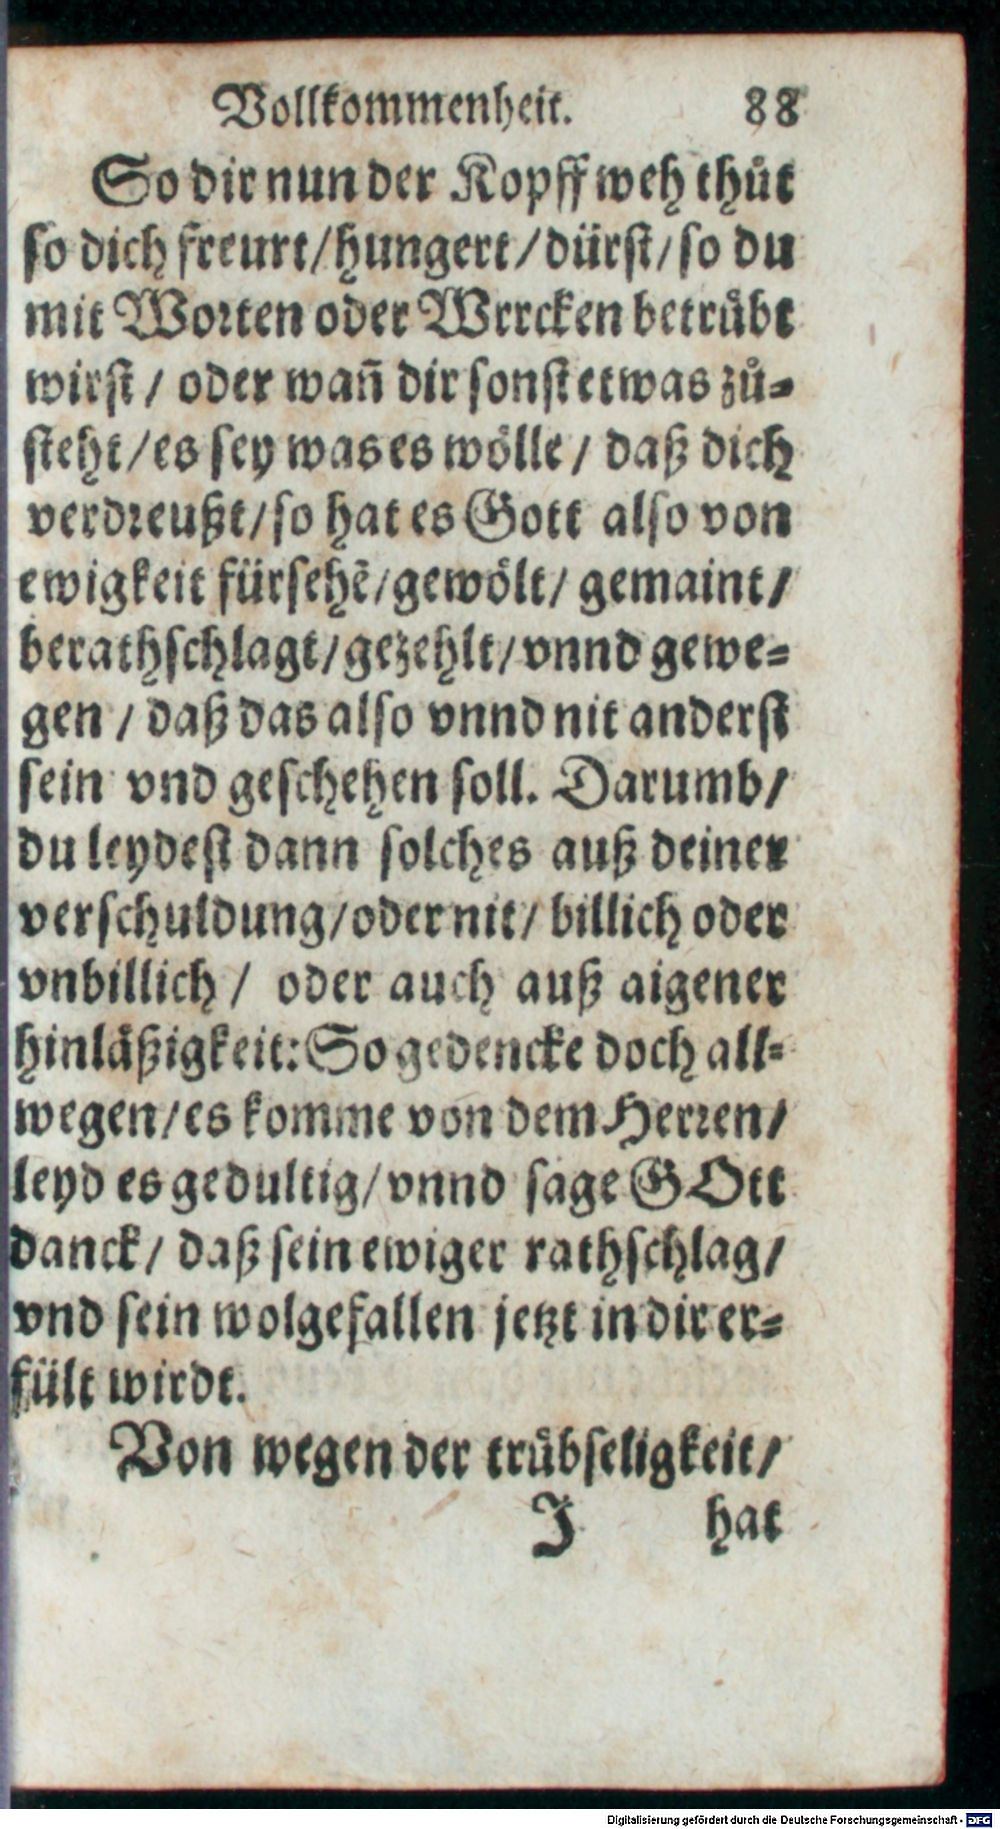 Vollkommenheit. 88
So dir nun der Kopff weh thůt
so dich freurt/hungert/dürst/so du
mit Worten oder Wrrcken betrůbt
wirst/ oder wañ dir sonst etwas zů-
steht/es sey was es wölle/ daß dich
verdreußt/so hat es Gott also von
ewigkeit fürsehẽ/gewölt/ gemaint/
berathschlagt/gezehlt/vnnd gewe-
gen/ daß das also vnnd nit anderst
sein vnd geschehen soll. Darumb/
du leydest dann solches auß deiner
verschuldung/oder nit/ billich oder
vnbillich/ oder auch auß aigener
hinläßigkeit: So gedencke doch all-
wegen/es komme von dem Herren/
leyd es gedultig/vnnd sage GOtt
danck/ daß sein ewiger rathschlag/
vnd sein wolgefallen jetzt in dir er-
fült wirdt.
Von wegen der trůbseligkeit/
J hat
Digitalisierung gefördert durch die Deutsche Forschungsgemeinschaft - DFG